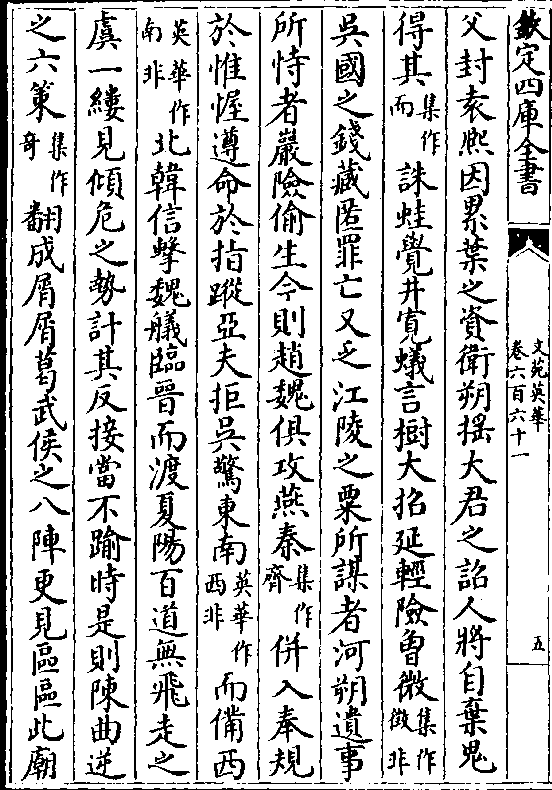 欽定四庫全書
文苑英華
卷六百六十一
五
父封袁熙因累葉之資衛朔揺大君之詔人將自棄鬼
得其集作而誅蛙覺井寛蟻言樹大招延輕險魯微集作徴非
吳國之錢藏匿罪亡又乏江陵之粟所謀者河朔遺事
所恃者巖險偷生今則趙魏俱攻燕秦集作齊併入奉規
於帷幄遵命於指蹤亞夫拒吳驚東南英華作西非而備西
英華作南非北韓信擊魏艤臨晉而渡夏陽百道無飛走之
虞一縷見傾危之勢計其反接當不踰時是則陳曲逆
之六策集作奇翻成屑屑葛武侯之八陣更見區區此廟